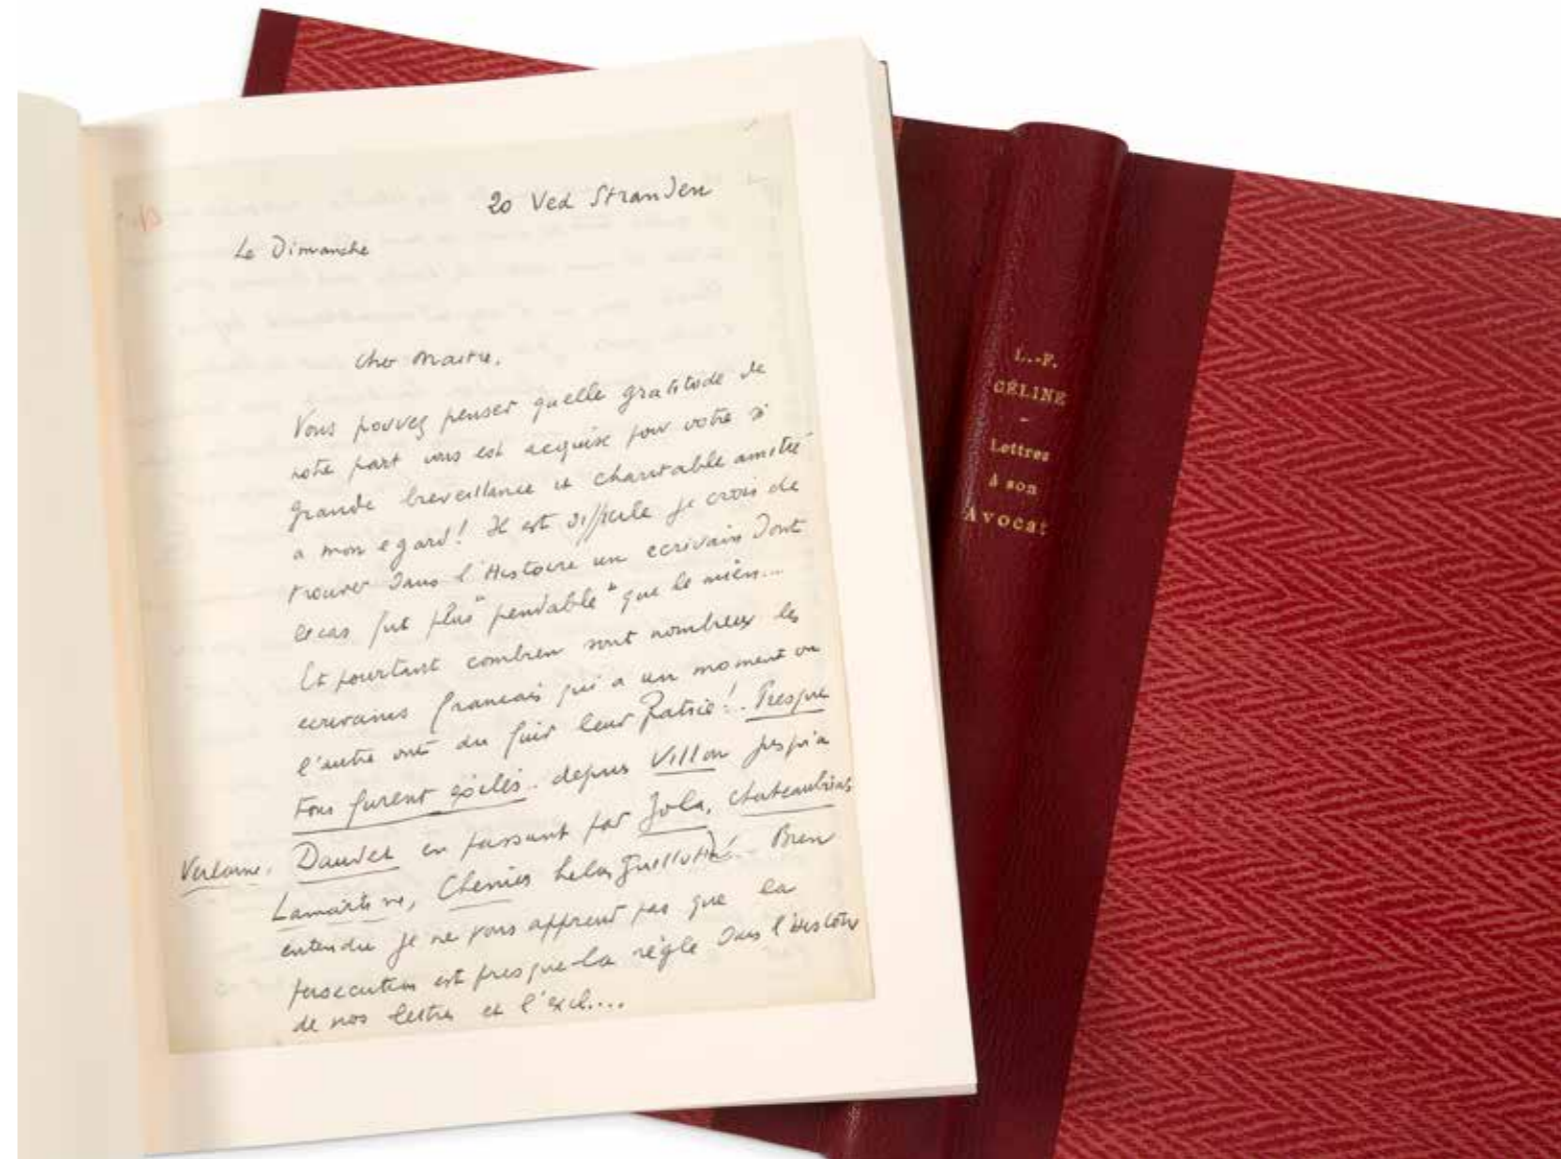 20 Ved Stranden
Le Dimanche
Cher Maitre,
Vous pouvez penser quelle gratitude de
notre part vous est acquise pour votre si
grande bienveillance et charitable amitié
a mon egard! Il est difficile je crois de
trouver dans l'Histoire un ecrivain dont
le cas fut plus "pendable" que le mien...
Et pourtant combien sont nombreux les
ecrivains francais qui a un moment ou
l'autre ont du fuir leur Patrie! Presque
tous furent exilés. depuis Villon jusqu'a
Verlaine, Daudet en passant par Zola, chateaubriand
Lamartine, Chenier helas guillotiné). Bien
entendu je ne vous apprend pas que la
persecution est presque la règle dans l'histoire
de nos lettres et l'exil....
L.-F.
CÉLINE
-
Lettres
à son
Avocat